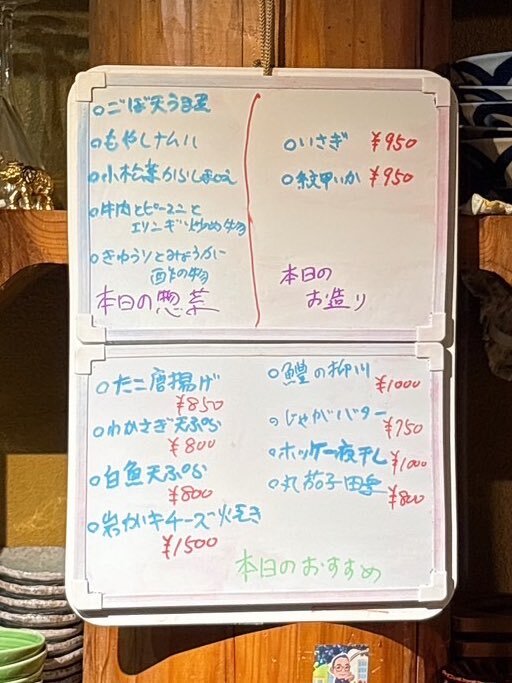 ごぼ天うま煮
もやしナムル
小松菜からしあえ
牛肉とピーマンと
エリンギ炒め物
きゅうりとみょうがに
酢の物
本日の惣菜
いさぎ ¥950
紋甲いか ¥950
本日の
お造り
たこ唐揚げ
¥850
わかさぎ天ぷら
¥800
白魚天ぷら
¥800
岩がキチーズ焼き
¥1500
鱧の柳川
¥1000
じゃがバター
¥750
ホッケ一夜干し
¥1000
丸茄子田楽
¥800
本日のおすすめ